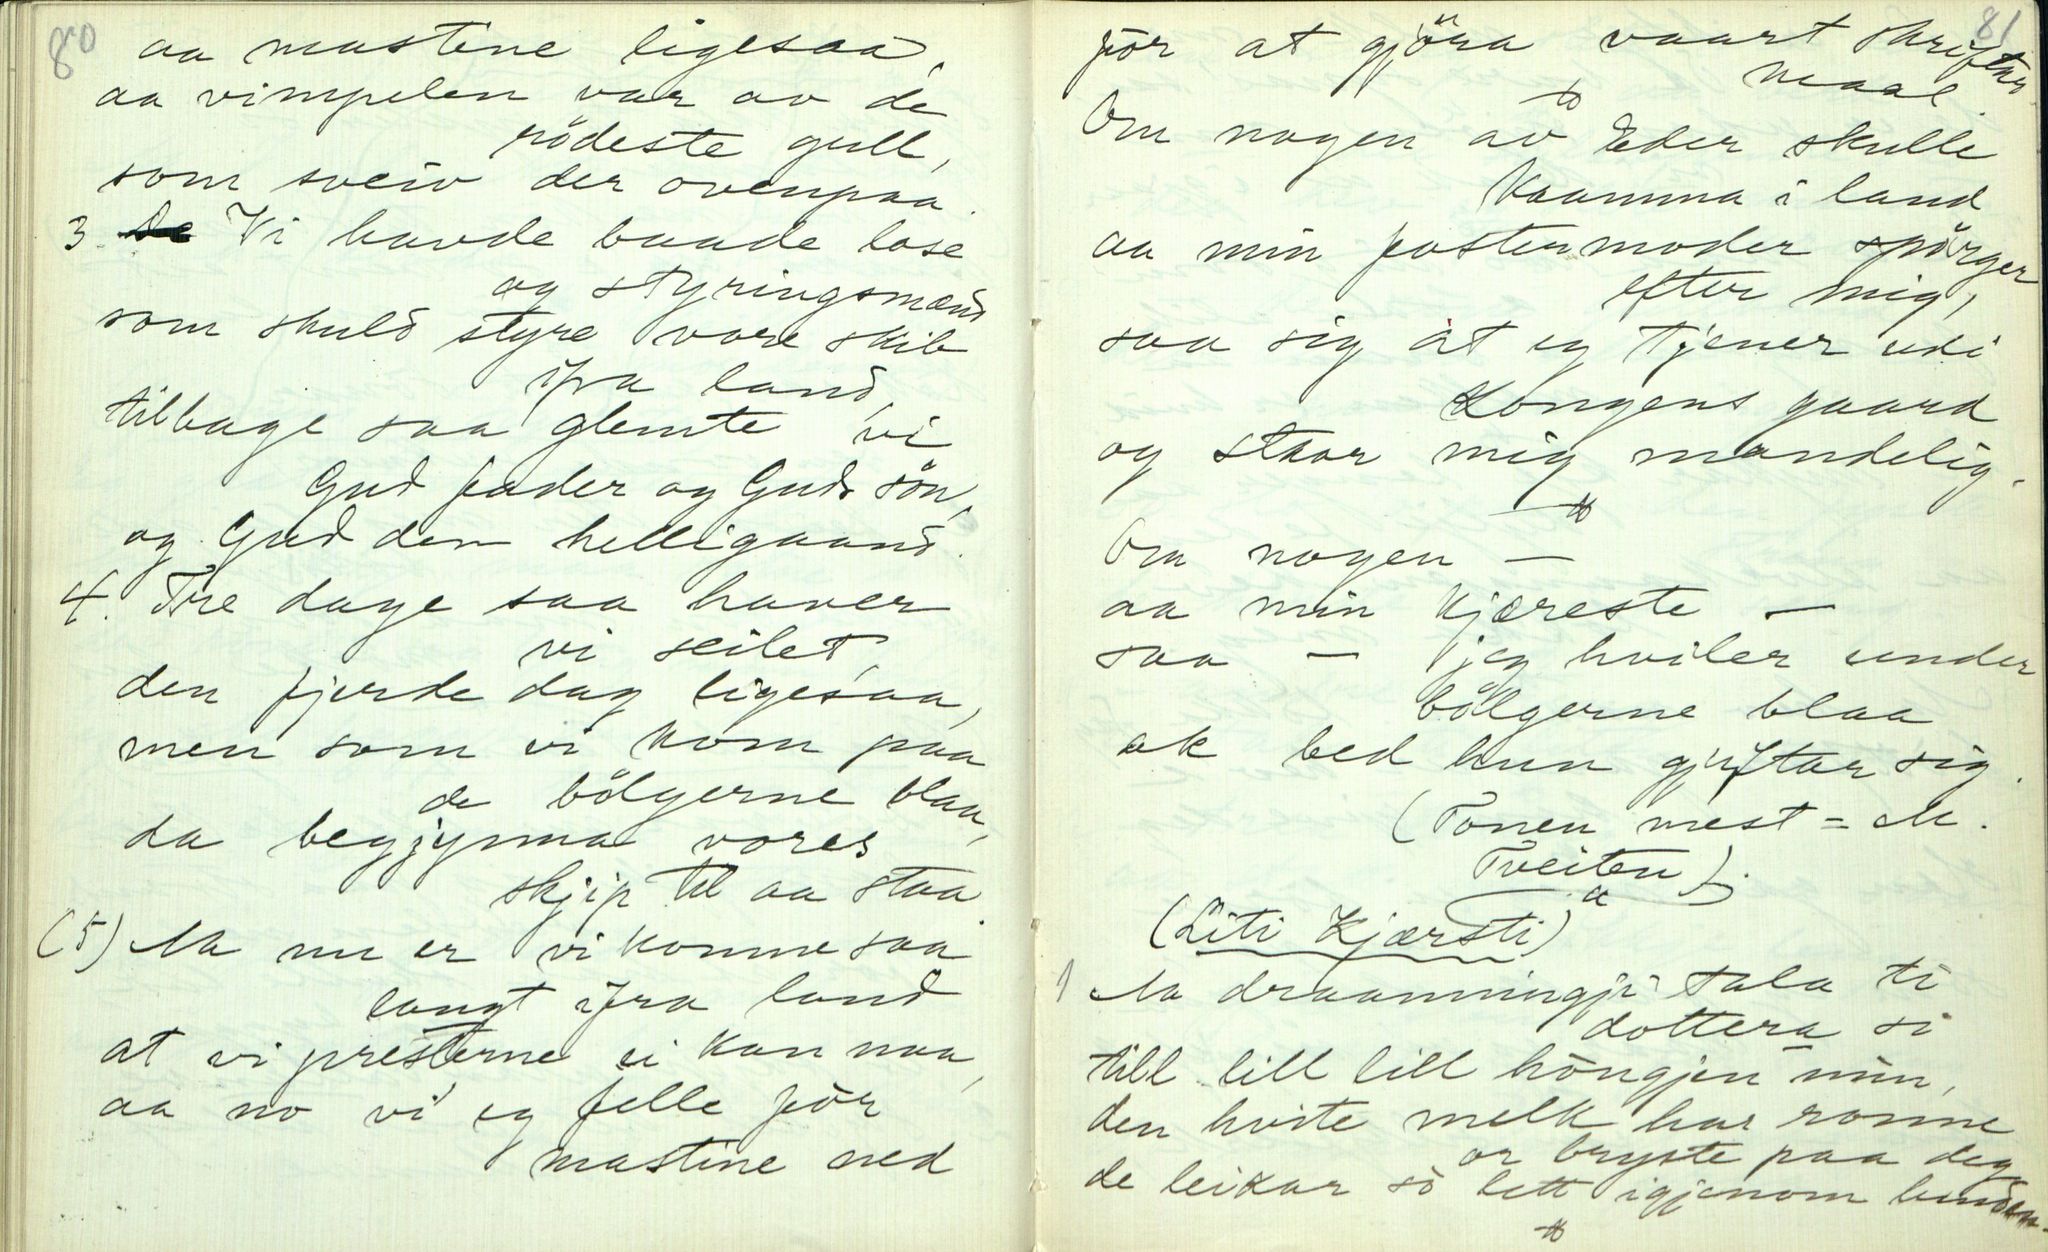 80
aa mastene ligesaa,
aa vimpelen var av de
rödeste gull,
som sveiv der ovenpaa.
3. De Vi havde baade lose
og styringsmænd
som skuld styre vore skib
ifra land,
tilbage saa glemte vi
Gud fader og Guds sön,
og Gud den helligaand.
4. Tre dage saa haver
vi seilet,
den fjerde dag ligesaa,
men som vi kom paa
de bölgerne blaa,
da begjynna vores
skjip til aa staa.
(5) Aa nu er vi komne saa
langt ifra land
at vi presterne ei kan naa,
aa no vi eg felleför
mastine ned
81
för at gjöra vaart skriftes
maal.
Om nogen av Eder skulle
kaamma i land
aa min fostermoder spörger
efter mig,
saa sig at eg tjener udi
Kongens gaard
og staar mig mandelig.
Om nogen —
aa min kjæreste —
saa — jeg hviler under
bölgerne blaa
ak bed hun gjiftar sig.
(Tonen mest = M.
Tveiten).
(Liti Kjærsti) a
1 Aa draanningji tala ti
dottera si
till lill lill höngjen min,
den hvite melk har ronne
or bryste paa deg
de leikar so lett igjenom lunden.